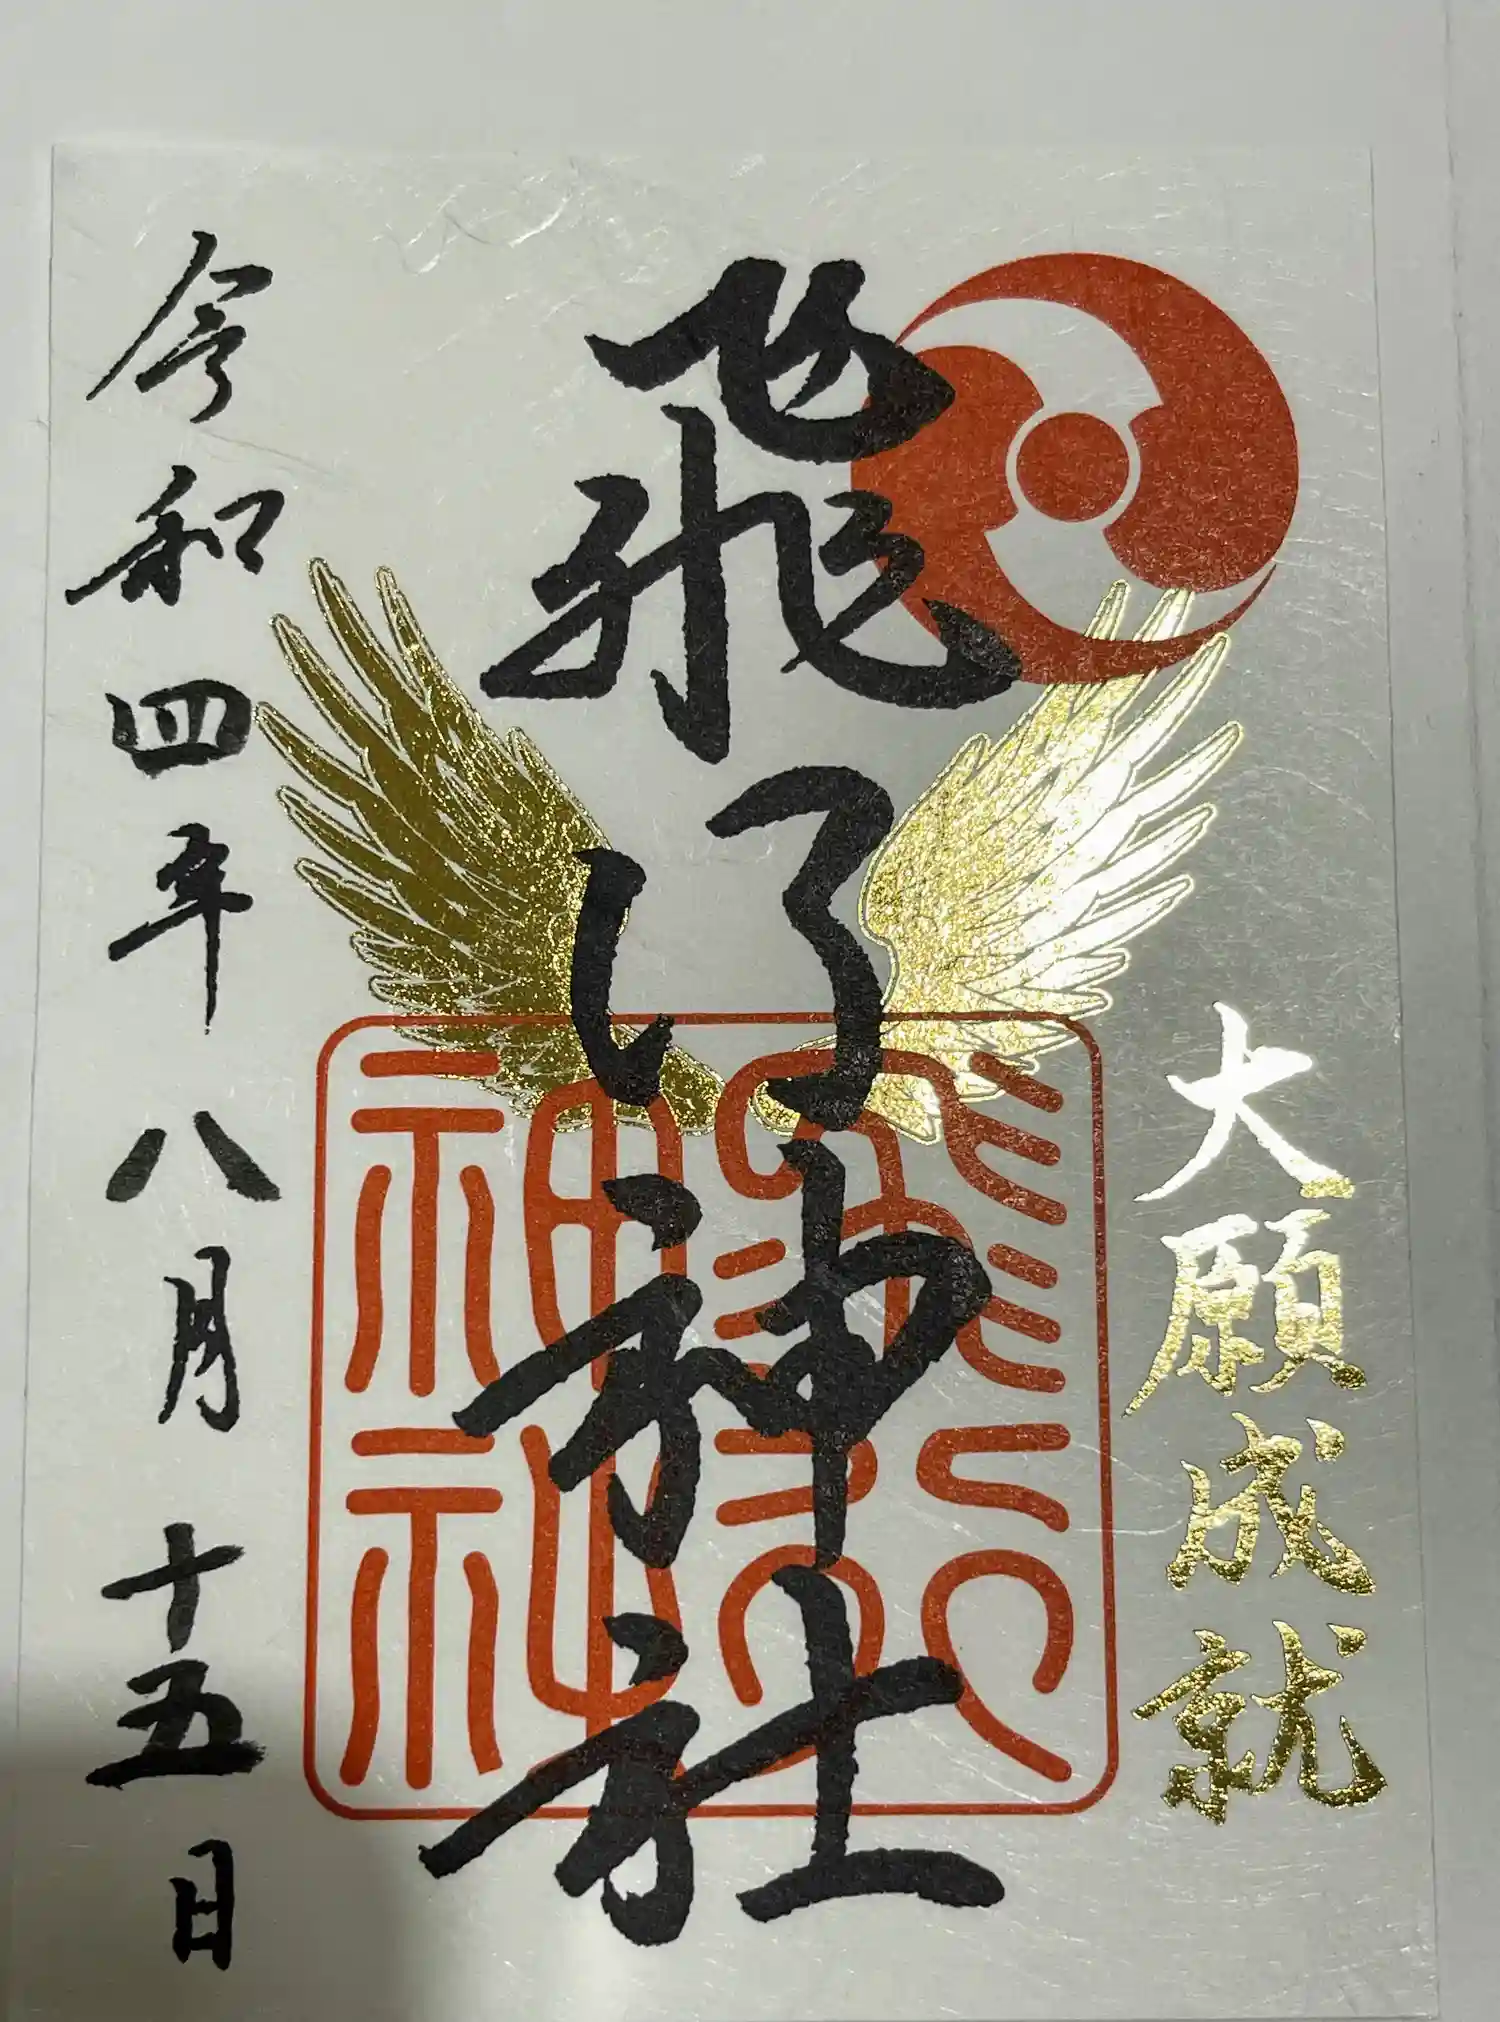 大願成就
飛行神社
飛行
神社
令和四年八月十五日